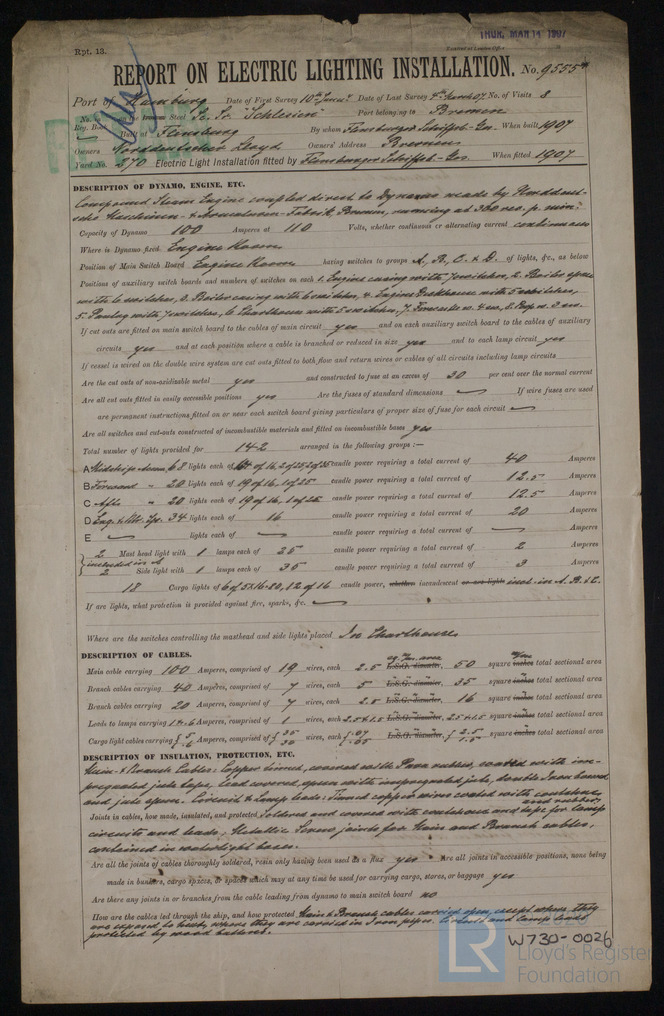 Rpt. 13.
THUR. MAR 14 1907
Received at London Office
REPORT ON ELECTRIC LIGHTING INSTALLATION. No. 9555
Port of Hamburg Date of First Survey 10th Date of Last Survey March 07 No. of Visits 8
No. in Reg. Book on the Iron or Steel S. S. Schlesien Port belonging to Bremen
Built at Flensburg By whom Flensburger Schiffsb. Ges. When built 1907
Owners Norddeutscher Lloyd Owners' Address Bremen
Yard No. 270 Electric Light Installation fitted by Flensburger Schiffsb. Ges. When fitted 1907
DESCRIPTION OF DYNAMO, ENGINE, ETC.
Compound Steam Engine coupled direct to Dynamo made by Norddeutsche Maschinen & Armaturen Fabrik, Bremen, running at 360 rev. p. min.
Capacity of Dynamo 100 Amperes at 110 Volts, whether continuous or alternating current continuous
Where is Dynamo fixed Engine Room
Position of Main Switch Board Engine Room having switches to groups A, B, C & D of lights, &c., as below
Positions of auxiliary switch boards and numbers of switches on each 1. Engine casing with 7 switches, 2. Boiler space
with 6 switches, 3. Boiler casing with 6 switches, 4. Engine with 5 switches,
5. Pantry with 7 switches, 6. Charthouse with 5 switches, 7. Forecastle w. 4 sw, 8. Poop w. 3 sw.
If cut outs are fitted on main switch board to the cables of main circuit yes and on each auxiliary switch board to the cables of auxiliary
circuits yes and at each position where a cable is branched or reduced in size yes and to each lamp circuit yes
If vessel is wired on the double wire system are cut outs fitted to both flow and return wires or cables of all circuits including lamp circuits
Are the cut outs of non-oxidizable metal yes and constructed to fuse at an excess of 30 per cent over the normal current
Are all cut outs fitted in easily accessible positions yes Are the fuses of standard dimensions If wire fuses are used
are permanent instructions fitted on or near each switch board giving particulars of proper size of fuse for each circuit
Are all switches and cut-outs constructed of incombustible materials and fitted on incombustible bases yes
Total number of lights provided for 142 arranged in the following groups :—
A Midships accom. 68 lights each of 16, 2 of 25, 2 of 35 candle power requiring a total current of 40 Amperes
B Forward " 20 lights each of 19 of 16, 1 of 25 candle power requiring a total current of 12.5 Amperes
C Aft " 20 lights each of 19 of 16, 1 of 25 candle power requiring a total current of 12.5 Amperes
D Eng. & Sp. 34 lights each of 16 candle power requiring a total current of 20 Amperes
E lights each of candle power requiring a total current of Amperes
2 Mast head light with 1 lamps each of 25 candle power requiring a total current of 2 Amperes
included in A
2 Side light with 1 lamps each of 35 candle power requiring a total current of 3 Amperes
18 Cargo lights of 6 of 5X16=80, 12 of 16 candle power, whether incandescent or arc lights incl. in A. B. & C.
If arc lights, what protection is provided against fire, sparks, &c.
Where are the switches controlling the masthead and side lights placed In Charthouse
DESCRIPTION OF CABLES.
sq. m. area
Main cable carrying 100 Amperes, comprised of 19 wires, each 2.5 L.S.G. diameter, 50 square inches total sectional area
Branch cables carrying 40 Amperes, comprised of 7 wires, each 5 L.S.G. diameter, 35 square inches total sectional area
Branch cables carrying 20 Amperes, comprised of 7 wires, each 2.5 L.S.G. diameter, 16 square inches total sectional area
Leads to lamps carrying Amperes, comprised of 1 wires, each 2.5 & 1.5 L.S.G. diameter, 2.5 & 1.5 square inches total sectional area
Cargo light cables carrying 5 Amperes, comprised of 35 wires, each .07 L.S.G. diameter, 2.5 square inches total sectional area
DESCRIPTION OF INSULATION, PROTECTION, ETC.
Main & Branch Cables: Copper tinned, covered with Para rubber, coated with impregnated jute tape, lead covered, spun with impregnated jute, double Iron bound
and jute spun. Circuit & Lamp leads: Tinned copper wire coated with caoutchouc
and rubber.
Joints in cables, how made, insulated, and protected Soldered and covered with caoutchouc and tape for lamp
circuits and leads, Metallic Screw joints for Main and Branch cables,
contained in watertight boxes.
Are all the joints of cables thoroughly soldered, resin only having been used as a flux yes Are all joints in accessible positions, none being
made in bunkers, cargo spaces, or spaces which may at any time be used for carrying cargo, stores, or baggage yes
Are there any joints in or branches from the cable leading from dynamo to main switch board no
How are the cables led through the ship, and how protected Main & Branch cables carried open, except where they
are exposed to heat, where they are carried in Iron pipes. Circuit and Lamp leads
protected by wood battens.
© 2020
LR
Lloyd's Register
Foundation
W730-0026